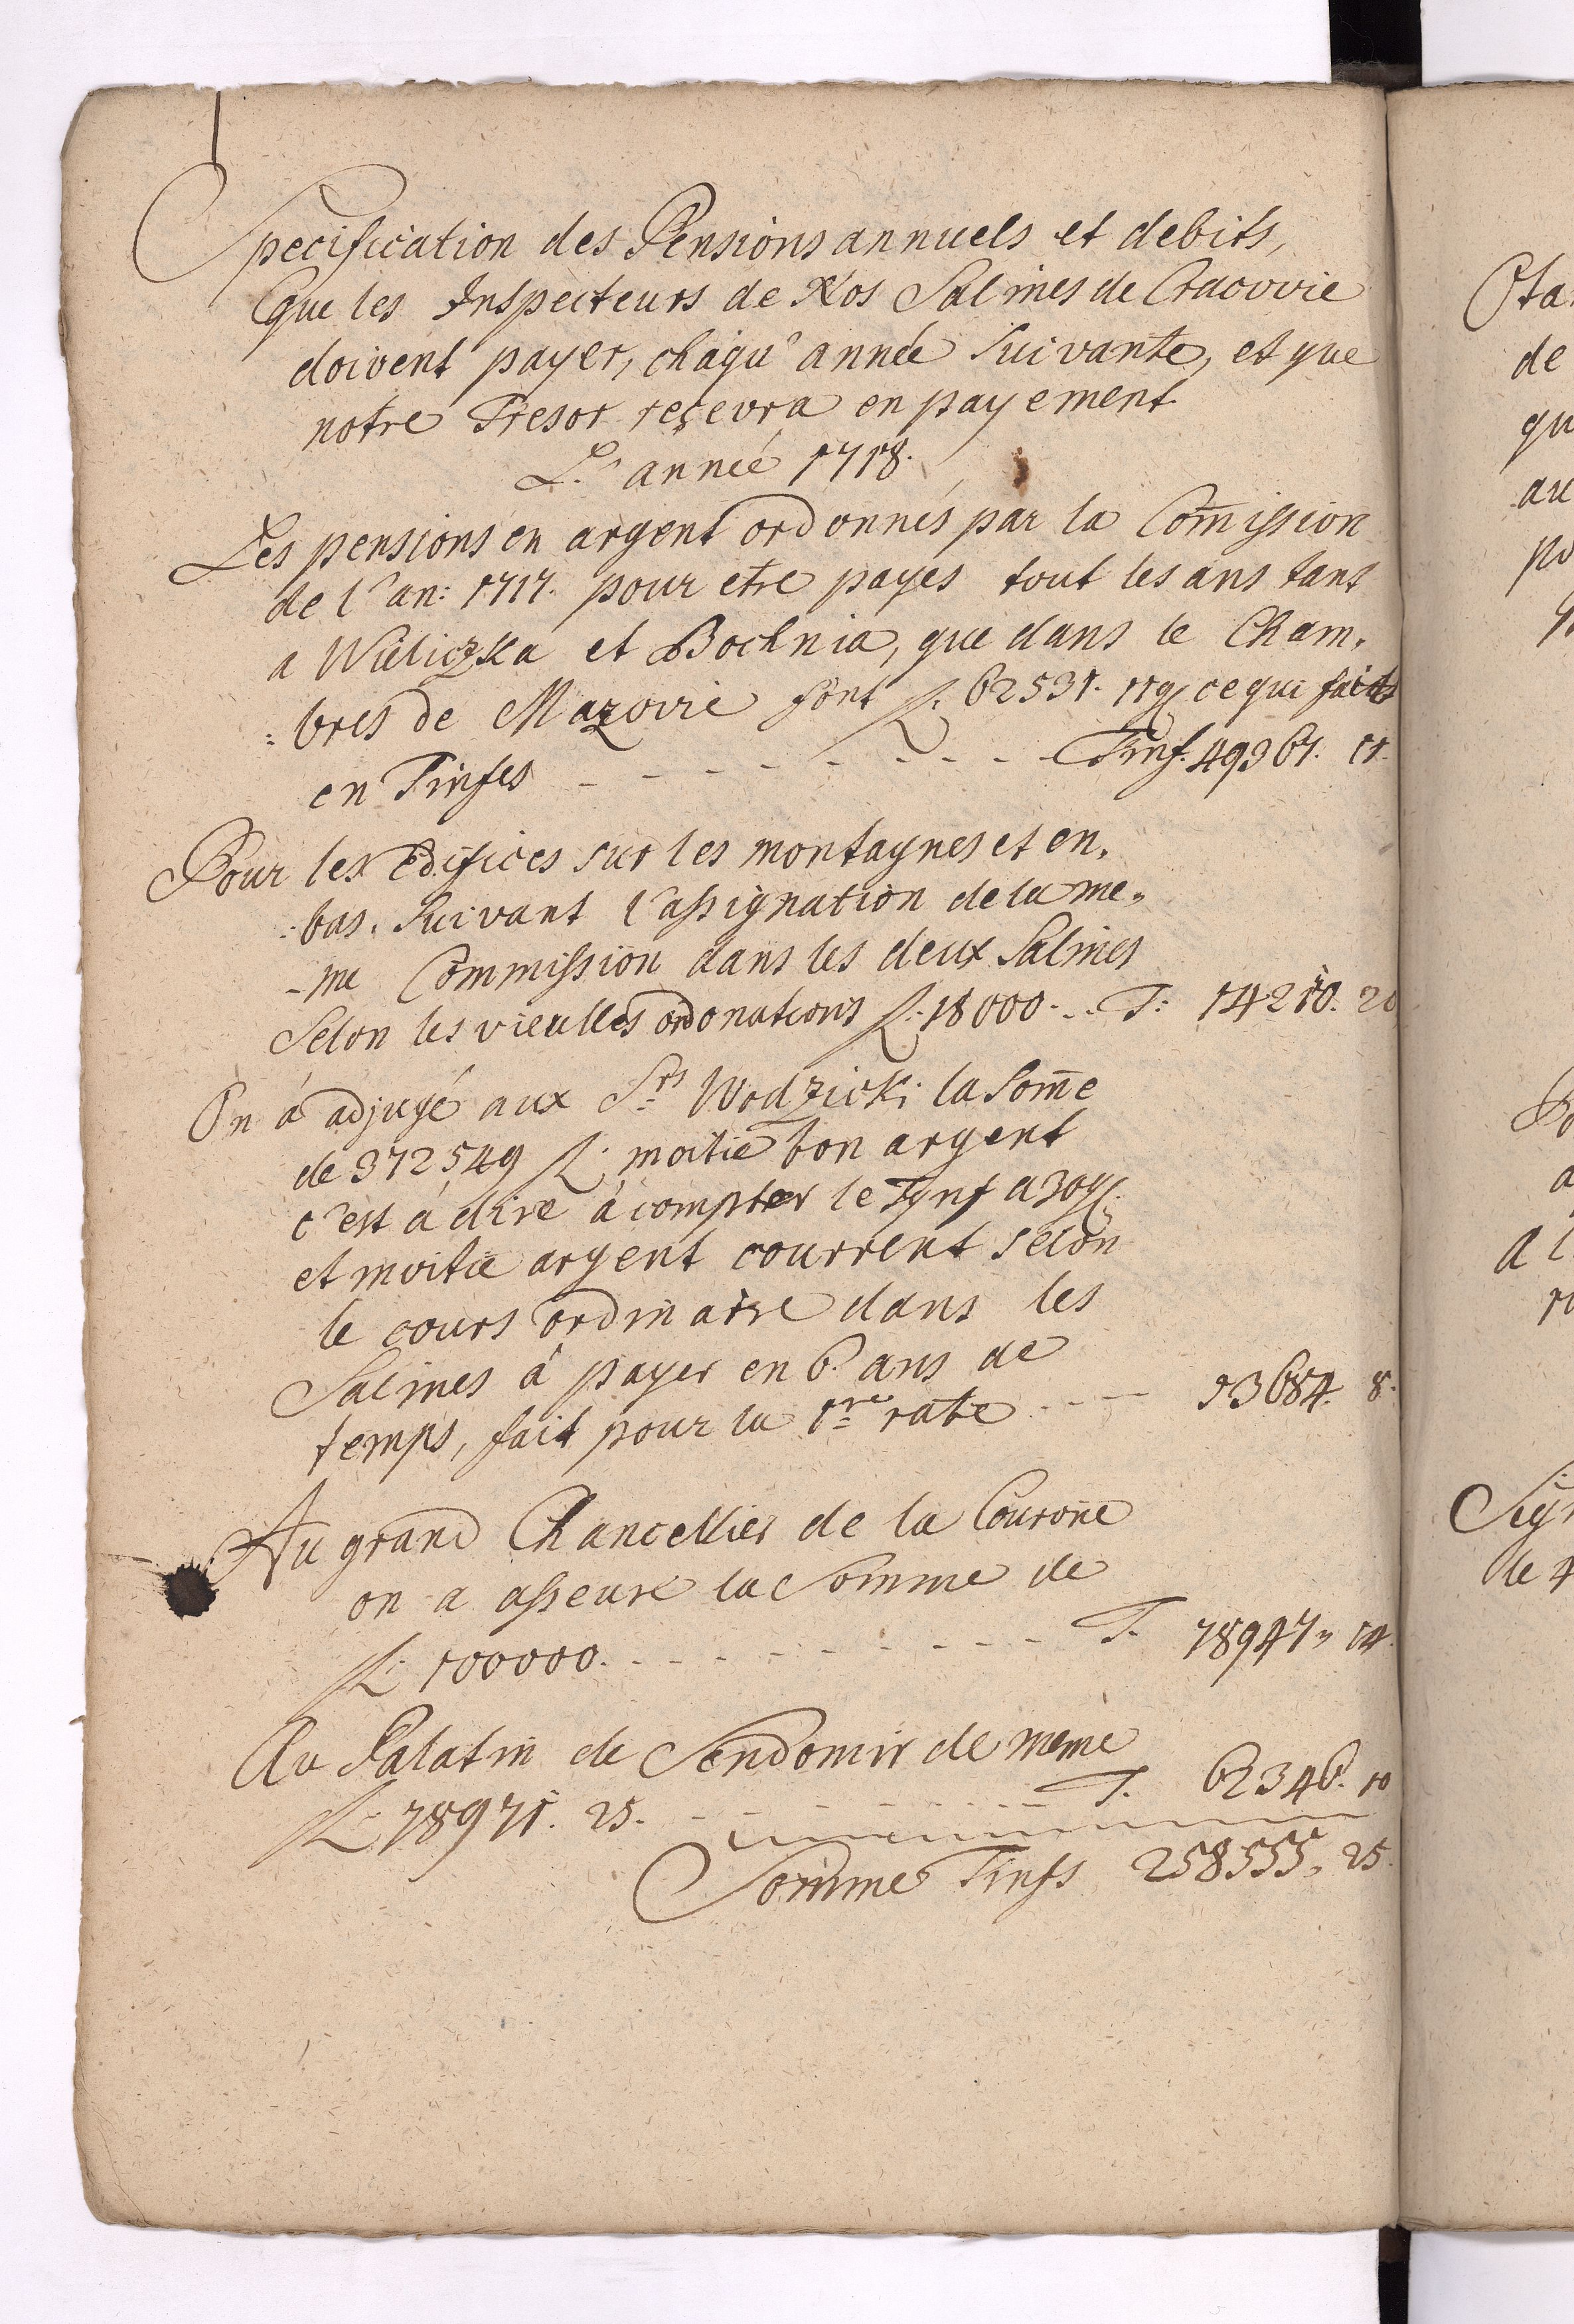 Specification des Pensions annuels et debits,
Que les Inspecteurs de Nos Salines de Cracovie
doivent payer, chaqu' année suivante, et que
notre Tresor reçevra en payement
L' année 1718.
Les pensions en argent ordonnés par la Com̄ission
de l'an: 1717. pour etre payés tout les ans tant
a Wieliczka et Bochnia, que dans le Cham,
:bres de Mazovie font fl. 62531. 11 g ce qui faits
en Tinfes - - - - - - - - - Tinf. 49367. 11.
Pour les Edifices sur les montagnes et en,
:bas. Suivant l'assignation de la me,,
-me Commission dans les deux Salines
Selon les vieulles ordonations fl: 18000. - . T: 14210. 20
On á adjugé aux Srs Wodzicki la som̄e
de 372549 fl: moitie bon argent
c'est á dire á compter le Tynf a 30 g.
et moitie argent courrent selon
le cours ordinaire dans les
Salines á payer en 6. ans de
temps, fait pour la 1re rate - - - 53684. 8.
Au grand Chancellier de la Courone
on a asseuré la Somme de
fl: 100000. - - - - - - - - T. 78947,, 14.
Au Palatin de Sendomir de méme
fl: 78971. 25. - - - - - - - T. 62346. 10
Somme Tinfs 258555,, 25.
Sta
de
qu
au
po
A l
de 4